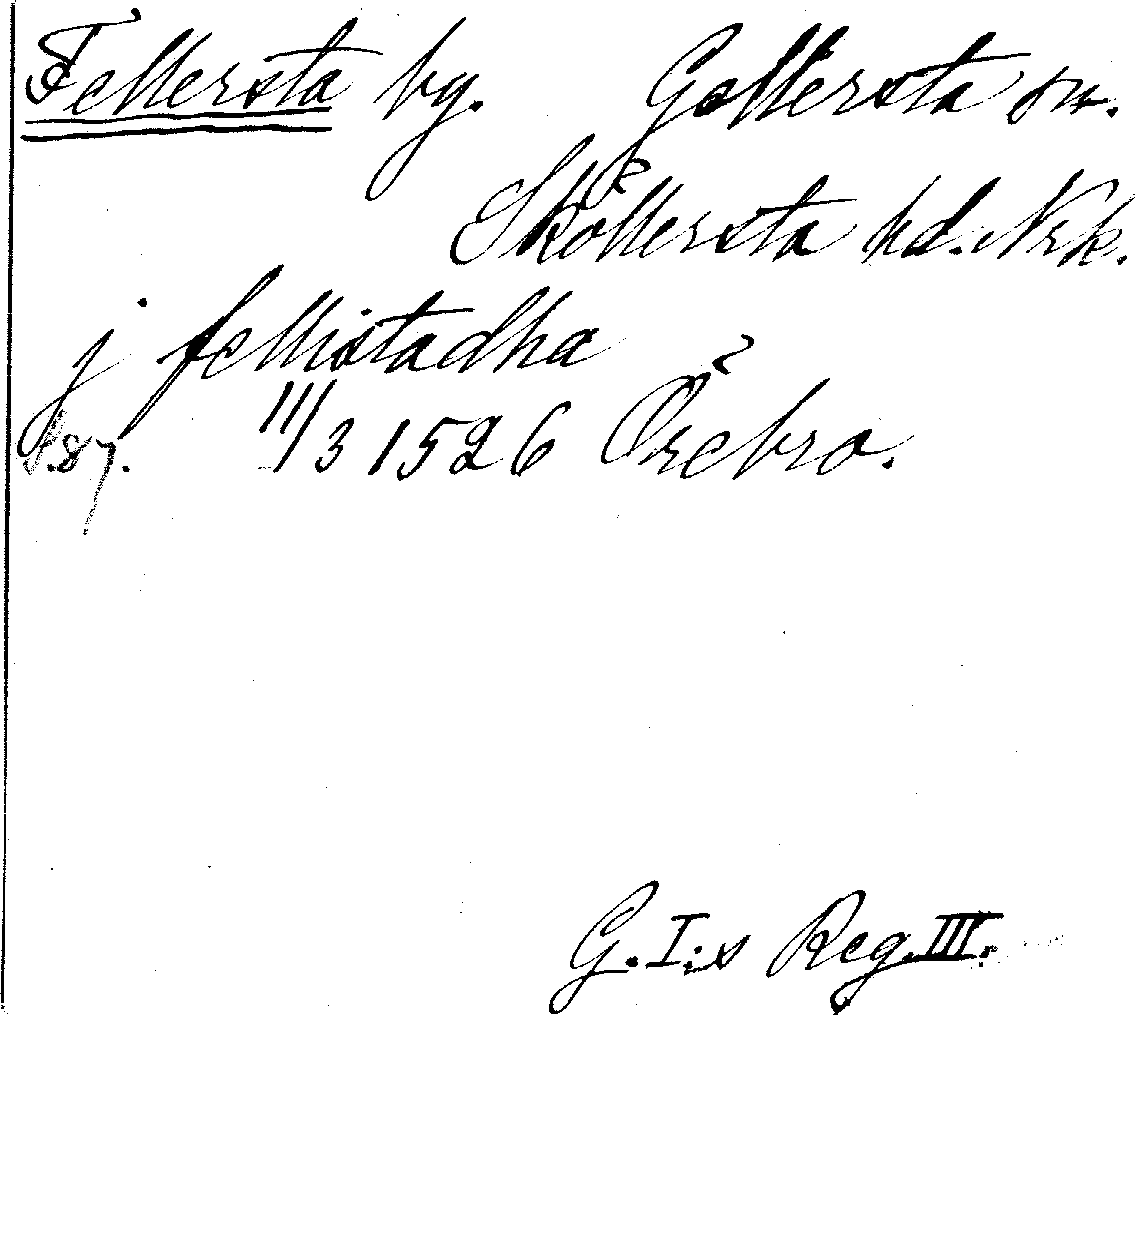 Fellersta by. Gällersta sn.
Sköllersta hd. Nrk.
j fellistadha
s. 87. 11/3 1526 Örebro.
G. I:s Reg. III.